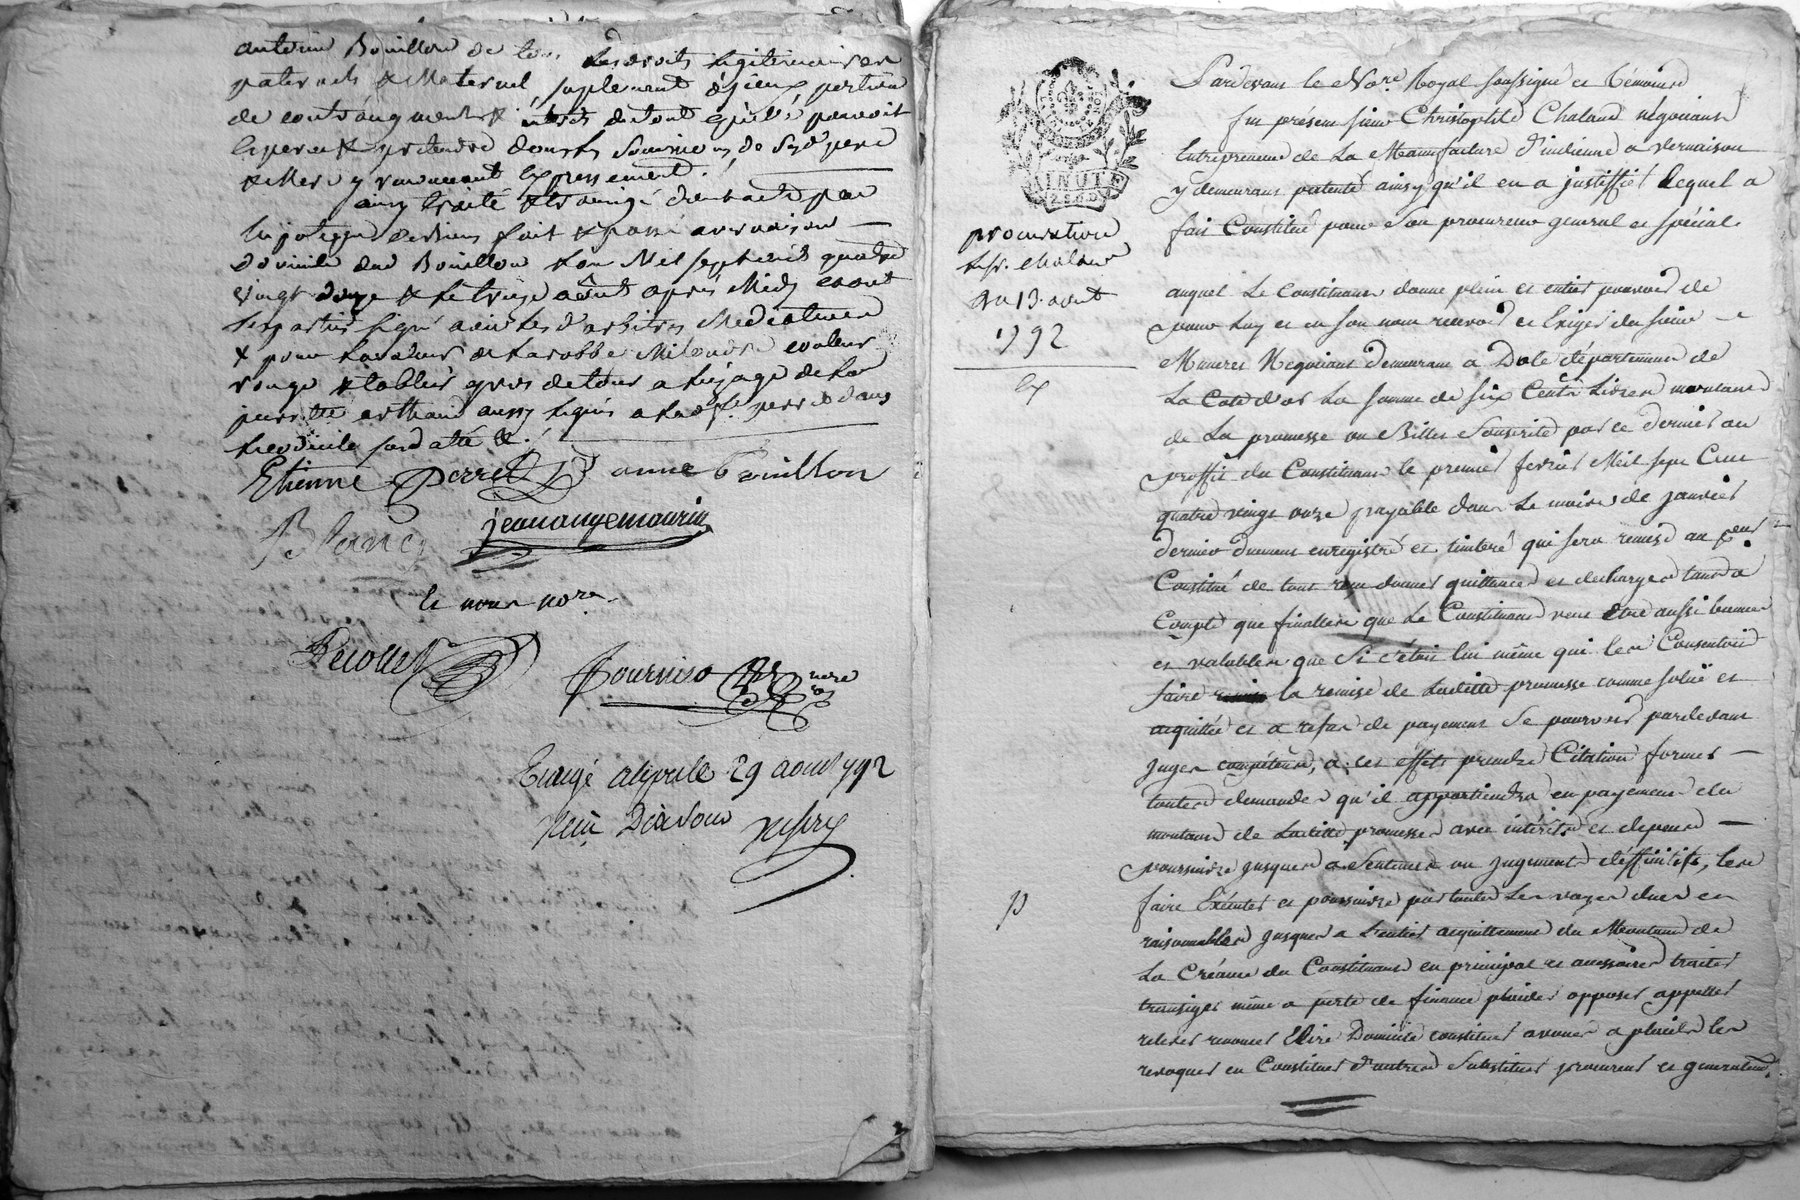 antoine Bouillon de tous ses droits legitimaires
paternels & Maternel, suplement d'iceux, portion
de tout qu'il pouvoit
esperer & pretendre dans les successions de sesd. pere
& Mere y renonceant expressement.
ainsy traité
fait & passé a vernaison
domicile dud Bouillon l'an Mil sept cents quatre
vingt douze & le treize aôut aprés Midy et ont
les parties signé avec les d'arbitres Mediateurs
& pour la valeur de la robbe couleur
rouge & tabliér
Etienne Perret anne bouillon
Blanc jean ange maurin
et nous no.re
Recollet
Fournier no.re
29 aout 792
reçu Dix sous
procuration
le Sr. Chaland
du 13. aout
1792
ex
MINUTE
Pardevant le No.re Royal soussigné et témoins
fu présent sieur Christophle Chaland négotiant
Entrepreneur de La Manufacture d'indienne a vernaison
y demeurant patenté ainsy qu'il en a justiffiés lequel a
fait Constitué pour son procureur general et spécial
auquel Le constituant donne plein et entier pouvoir de
pour Luy et en son nom recevoir et Exiger du sieur
Négotiant demeurant a Dole département de
La Cote d'or La somme de six Cents Livres montant
de La promesse ou Billet souscrite par ce dernier au
proffit du Constituant le premier fevrier Mil sept Cent
quatre vingt onze payable dans Le mois de janvier
dernier duement enregistré et timbré qui sera remise au pr.eur
Constitué de tout reçu donner quittances et decharges tant a
Compte que finalles que Le Constituant veut être aussi bonnes
et valables que Si c'étoit lui même qui les Consentoit
faire la remise de Laditte promesse comme soluë et
aquittée et a refus de payement se pourvoir pardevant
juges compétens, a ces effets prendre Citation former
toutes demandes qu'il appartiendra en payement du
montant de Laditte promesse avec intérêts et depens
poursuivre jusques a Sentence ou jugements déffinitifs, les
faire Exécuter et poursuivre par toutes Les voyes dues et
raisonnables jusques a L'entier aquittement du Montant de
La Créance du Constituant en principal et accessoires traiter
transiger même a perte de finance plaider opposer appeller
relever renoncer Elire Domicile constituer avoués a plaids les
revoquer en Constituer d'autres Substituer procureur et generallem.t